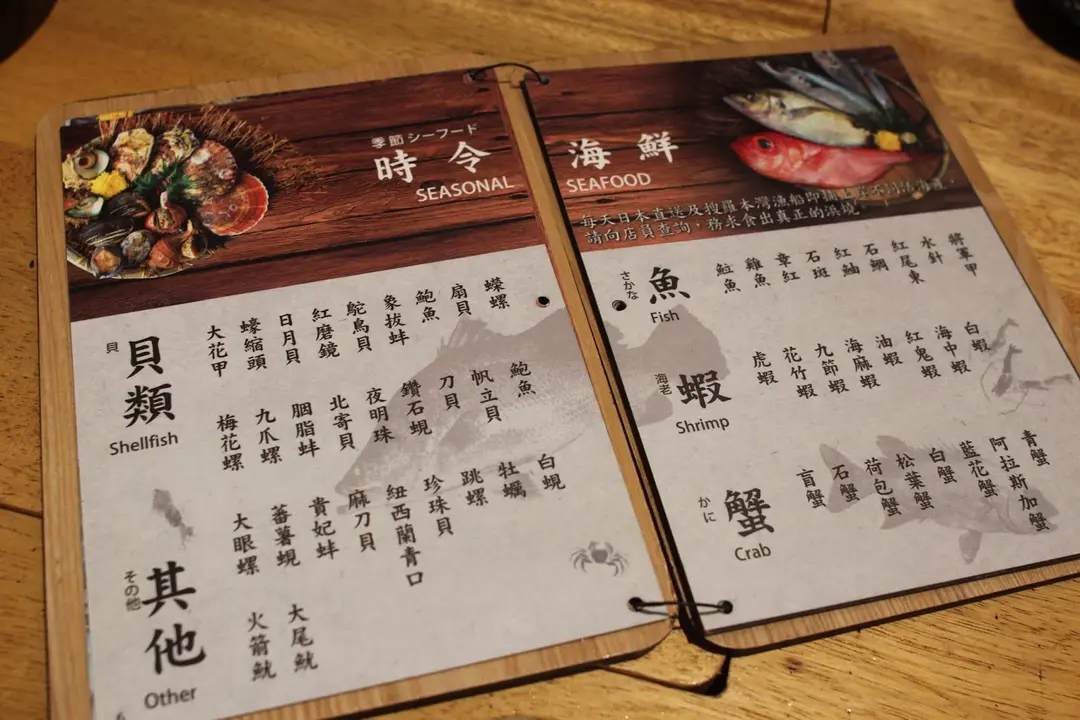 季節シーフード
時令
SEASONAL
貝
貝類
Shellfish
大花甲
蠔縮頭
日月貝
紅磨鏡
鴕鳥貝
象拔蚌
鮑魚
扇貝
蠑螺
梅花螺
九爪螺
胭脂蚌
北寄貝
夜明珠
鑽石蜆
刀貝
帆立貝
鮑魚
大眼螺
蕃薯蜆
貴妃蚌
麻刀貝
紐西蘭青口
珍珠貝
跳螺
牡蠣
白蜆
その他
其他
Other
火箭魷
大尾魷
海鮮
SEAFOOD
每天日本直送及搜羅本灣漁船即捕
請向店員查詢，務求食出真正的浜燒
さかな
魚
Fish
魟魚
雞魚
章紅
石斑
紅鮋
石鯛
紅尾東
水針
將軍甲
海老
蝦
Shrimp
虎蝦
花竹蝦
九節蝦
海麻蝦
油蝦
紅鬼蝦
海中蝦
白蝦
かに
蟹
Crab
盲蟹
石蟹
荷包蟹
松葉蟹
白蟹
藍花蟹
阿拉斯加蟹
青蟹